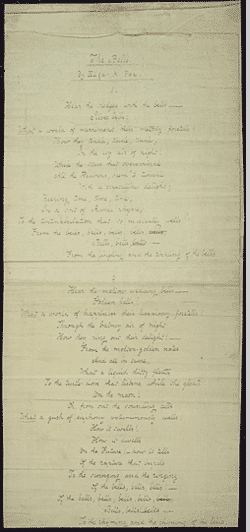 The Bells.
By Edgar A. Poe.
1.
Hear the sledges with the bells —
Silver bells!
What a world of merriment their melody foretells!
How they tinkle, tinkle, tinkle,
In the icy air of night!
While the stars that oversprinkle
All the Heavens, seem to twinkle
With a crystalline delight;
Keeping time, time, time,
In a sort of Runic rhyme,
To the tintinabulation that so musically wells
From the bells, bells, bells, bells,
Bells, bells, bells —
From the jingling and the tinkling of the bells.
2
Hear the mellow wedding bells —
Golden bells!
What a world of happiness their harmony foretells!
Through the balmy air of night
How they ring out their delight! —
From the molten-golden notes
And all in tune,
What a liquid ditty floats
To the turtle-dove that listens while she gloats
On the moon!
Oh, from out the sounding cells
What a gush of euphony voluminously wells!
How it swells!
How it dwells
On the Future! — how it tells
Of the rapture that impels
To the swinging and the ringing
Of the bells, bells, bells —
Of the bells, bells, bells, bells,
Bells, bells, bells —
To the rhyming and the chiming of the bells